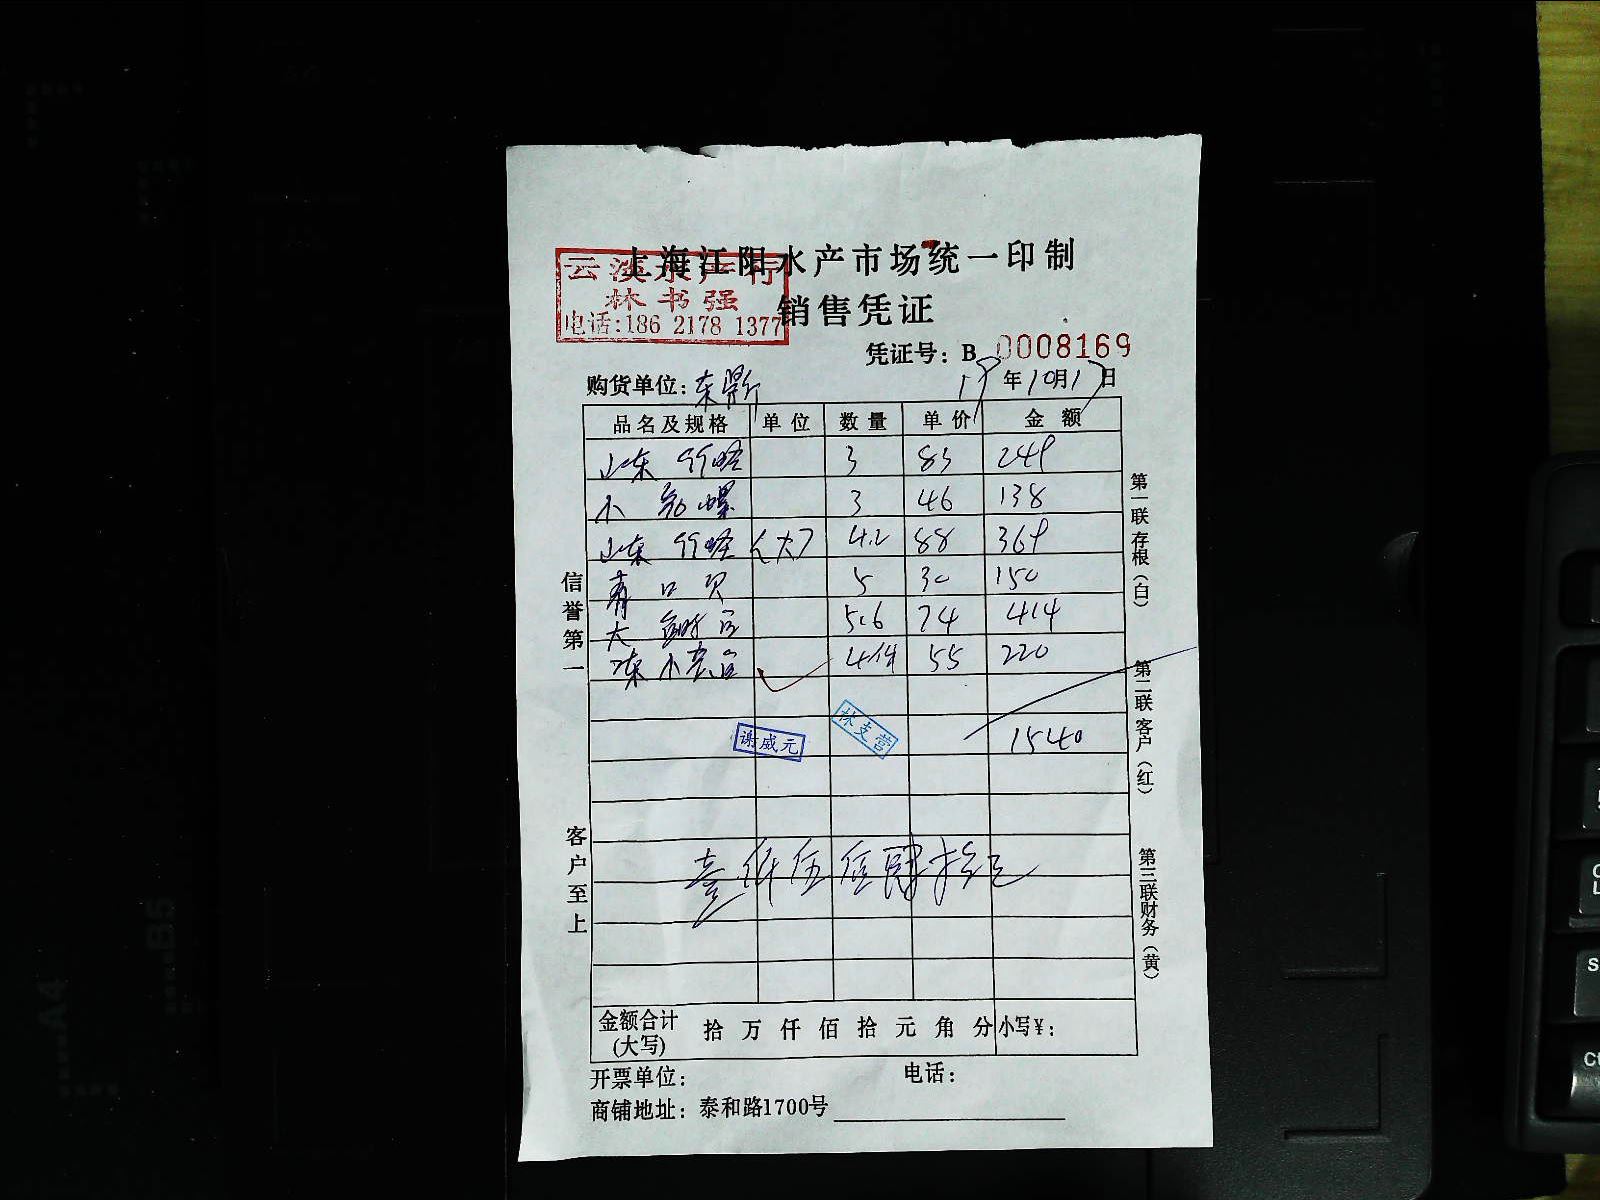 上海江阳水产市场统一印制
林书强
电话:186 2178 1377
销售凭证
凭证号: B 0008169
购货单位: 东鼎 19年10月17日
品名及规格 单位 数量 单价 金额
山东 竹蛏 3 83 249
小 螺 3 46 138
山东 竹蛏 (大) 4.2 88 369
青口贝 5 30 150
大 5.6 74 414
冻小 4件 55 220
1540
谢威元
林支营
壹仟伍佰肆拾元
金额合计(大写) 拾 万 仟 佰 拾 元 角 分 小写¥:
开票单位: 电话:
商铺地址: 泰和路1700号
信誉第一
客户至上
第一联 存根(白)
第二联 客户(红)
第三联 财务(黄)
A4
B5